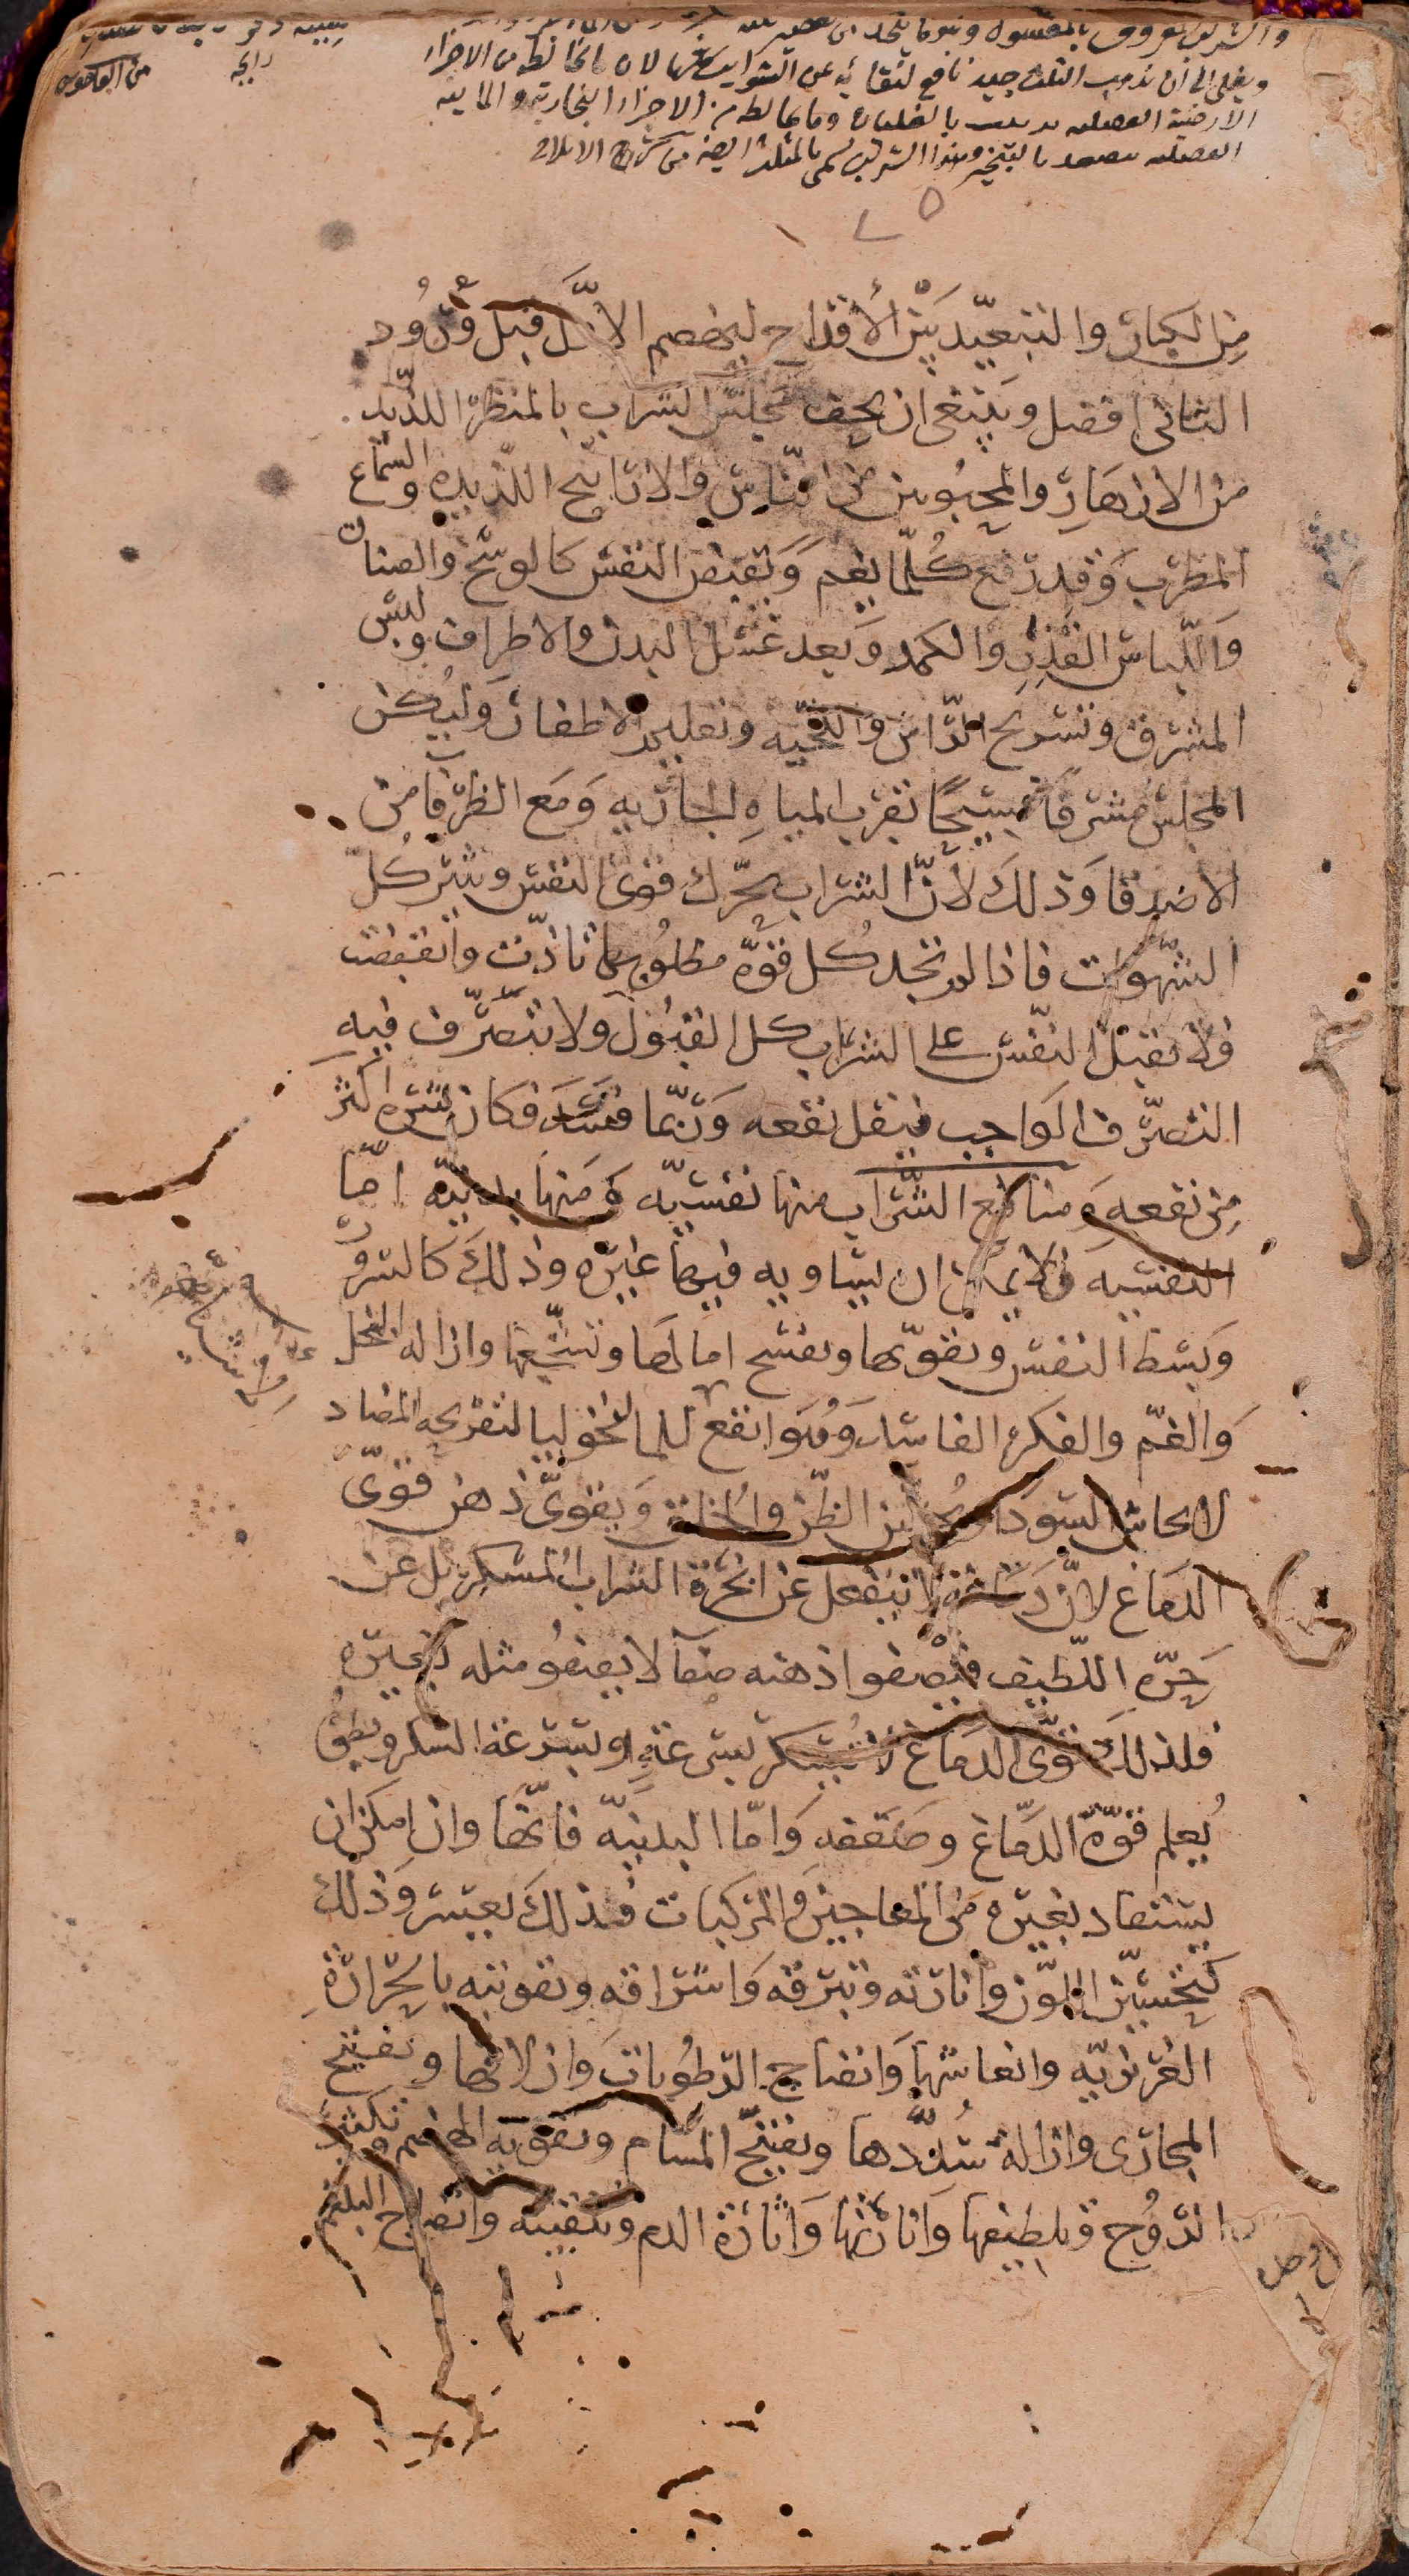 والشراب المعروف بالمغسول وهو ما يتخذ من عصير
ويغلى الى ان يذهب الثلث جيد نافع لنقائه عن الشوائب لان ما يخالطه من الاجزاء
الارضية الفضلية بالغليان وما يخالطه من الاجزاء البخارية والمائية
الفضلية تصعد بالتبخير وهذا الشراب يسمى بالمثلث ايضا من شرح الايلاقي
من القاموس
من الكبار والتبعيد بين الأقداح لينهضم الاول قبل ورود
الثاني افضل وينبغي ان يحف مجلس الشراب بالمنظر اللذيد
من الازهار والمحبوبين من الناس والاراييح اللذيذه والسماع
المطرب وقد رفع كلما يغم ويقبض النفس كالوسخ والصنان
واللباس القذر والكمد وبعد غسل البدن والاطراف ولبس
المشرق وتسريح الراس واللحيه وتقليم الاظفار وليكن
المجلس مشرقا فسيحا بقرب المياه الجاريه ومع الظرفا من
الاصدقا وذلك لان الشراب يحرك قوى النفس ويثير كل
الشهوات فاذا لم تجد كل قوة مطلوبها تاذت وانقبضت
فلا تقبل النفس على الشراب كل القبول ولا تتصرف فيه
التصرف الواجب فيقل نفعه وربما فسد فكان شره اكثر
من نفعه ومنافع الشراب منها نفسيه ومنها بدنيه اما
النفسيه فلا يمكن ان يساويه فيها غيره وذلك كالسرور
وبسط النفس وتقويها وتفسح امالها وتشجعها وازاله البخل
والغم والفكر الفاسد وهو انفع للمالنخوليا لتفريحه المضاد
لايحاش السودا ويحسن الظن والخلق ويقوى ذهن قوى
الدماغ لان دماغه لا ينفعل عن ابخرة الشراب المسكر بل عن
حره اللطيف فيصفوا ذهنه صفا لا يصفو مثله بغيره
فلذلك قوى الدماغ لا يسكر بسرعة وبسرعة السكر وبطئه
يعلم قوة الدماغ وضعفه واما البدنيه فانها وان امكن ان
يستفاد بغيره من المعاجين والمركبات فذلك بعسر وذلك
كتحسين اللون وانارته وتبرقه واشراقه وتقويته بالحرارة
الغريزيه وانعاشها وانضاج الرطوبات وازلاقها وتفتيح
المجارى وازالة سددها وتفتيح المسام وتقويه الهضم وتكثير
الروح وتلطيفها وانارتها واثارة الدم وتنقيته وانضاج البلغم